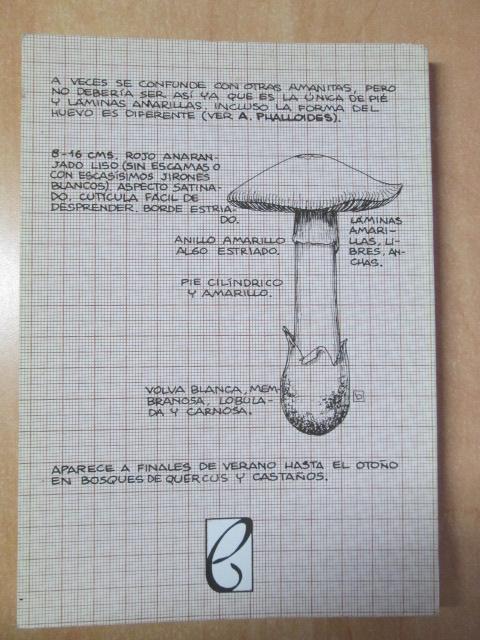 A VECES SE CONFUNDE CON OTRAS AMANITAS, PERO
NO DEBERÍA SER ASÍ YA QUE ES LA ÚNICA DE PIE
Y LÁMINAS AMARILLAS. INCLUSO LA FORMA DEL
HUEVO ES DIFERENTE (VER A. PHALLOIDES).
8-16 CMS. ROJO ANARAN-
JADO LISO (SIN ESCAMAS O
CON ESCASÍSIMOS JIRONES
BLANCOS). ASPECTO SATINA-
DO. CUTÍCULA FÁCIL DE
DESPRENDER. BORDE ESTRIA-
DO.
LÁMINAS
AMARI-
LLAS, LI-
BRES, AN-
CHAS.
ANILLO AMARILLO
ALGO ESTRIADO.
PIE CILÍNDRICO
Y AMARILLO.
VOLVA BLANCA, MEM-
BRANOSA, LOBULA-
DA Y CARNOSA.
APARECE A FINALES DE VERANO HASTA EL OTOÑO
EN BOSQUES DE QUERCUS Y CASTAÑOS.